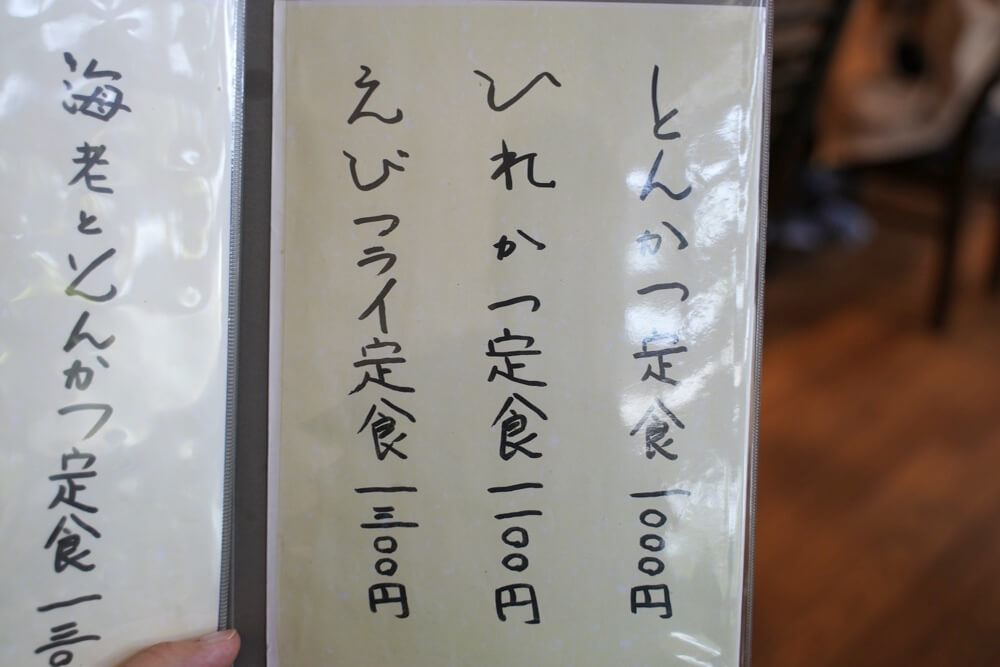 とんかつ定食 一〇〇〇円
ひれかつ定食 一一〇〇円
えびフライ定食 一三〇〇円
海老ととんかつ定食 一三〇